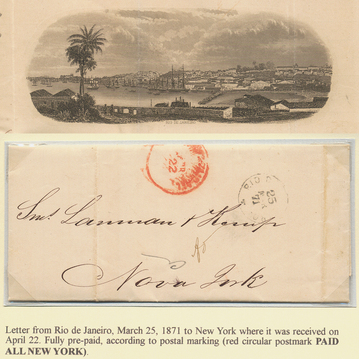 22
RIO
25
Snrs. Lanman & Kemp
Nova York
Letter from Rio de Janeiro, March 25, 1871 to New York where it was received on
April 22. Fully pre-paid, according to postal marking (red circular postmark PAID
ALL NEW YORK).